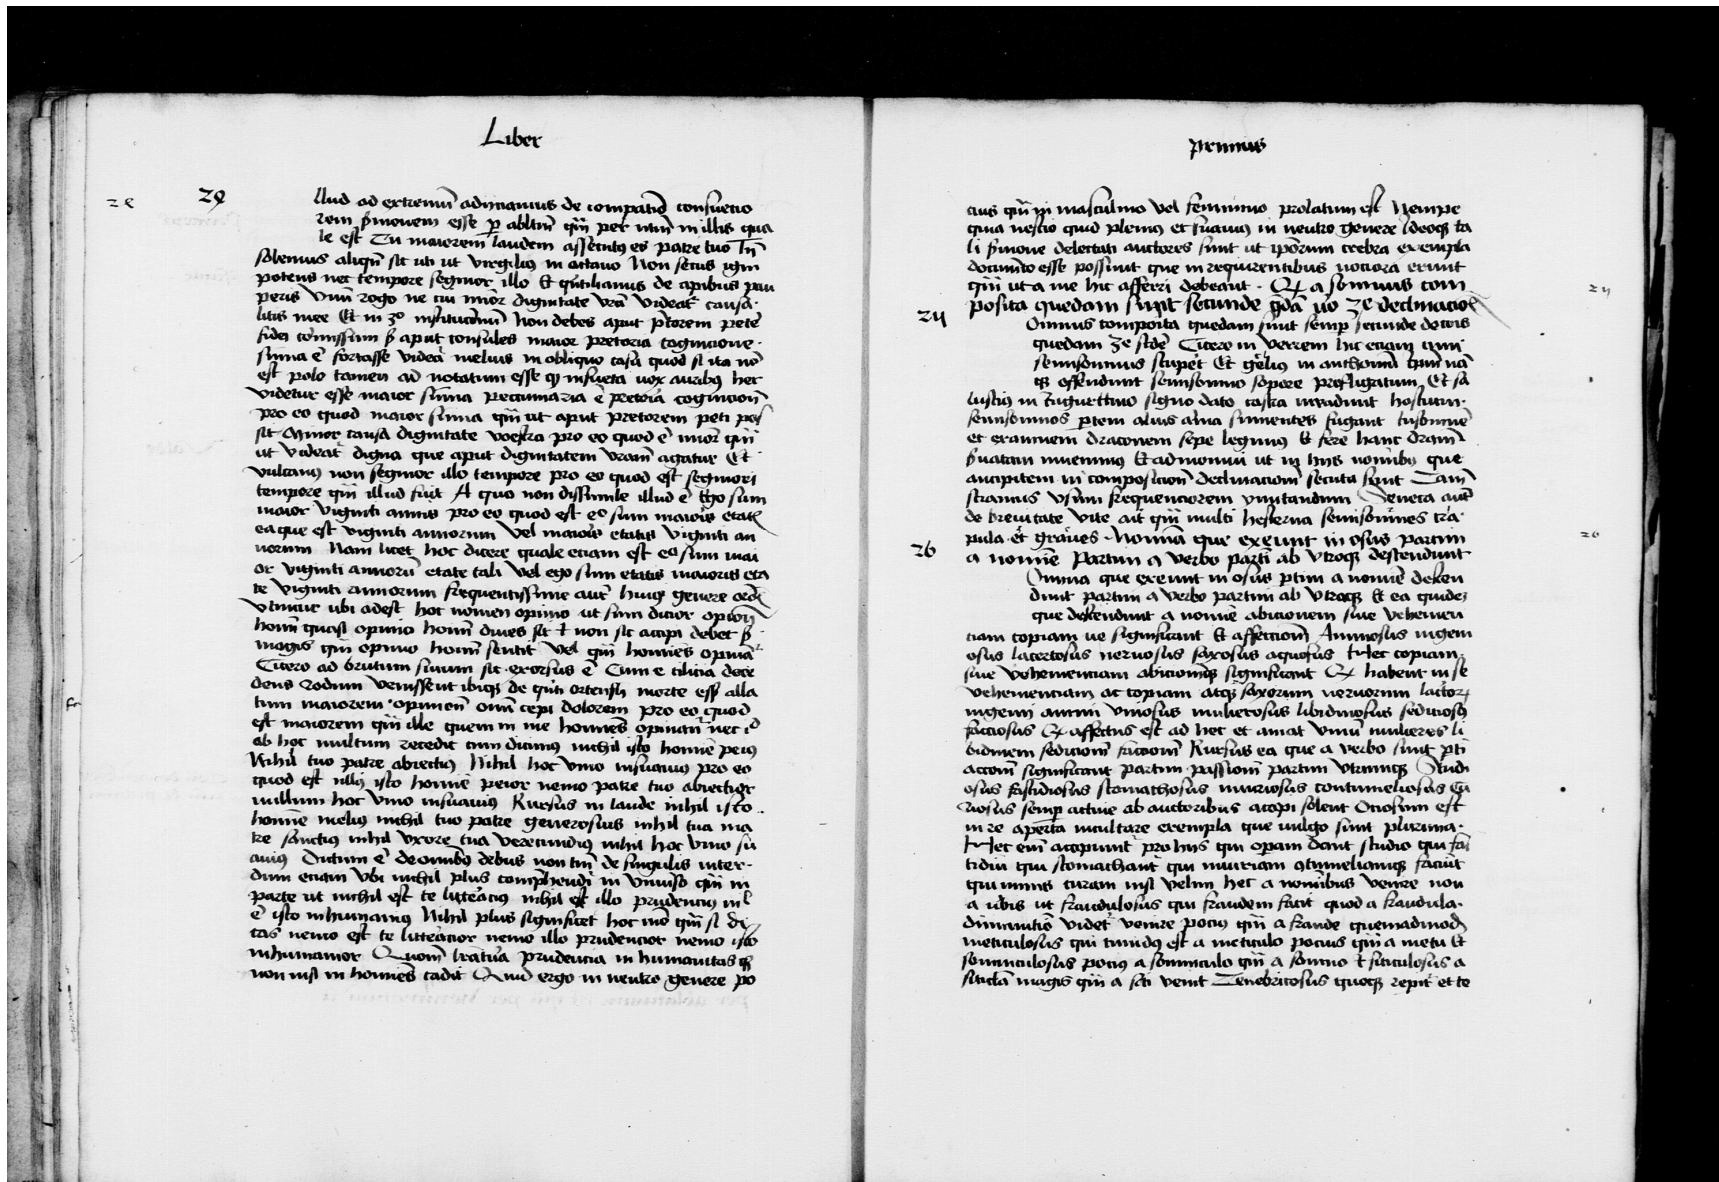 Liber
llud ad extremũ adijciamus de compatiõ consuetio
rem sermonem esse per abltm̃ qm̃ per ntm̃ in illis qua
le est Tu maiorem laudem assecutus es patre tuo Tñ
solemus aliqñ sic uti ut virgilius in octavo Non secus igni
potens nec tempore segnior illo Et quĩtilianus de apibus pau
peris Vnũ rogo ne cui mĩor dignitate vrã videat̃ causa
litis mee Et in 3º institucionũ Non debes aput p̃torem petẽ
fidei cõmissum sed aput consules maior pretoria cognicione
suma ẽ fortasse videat̃ melius in obliquo casu quod si ita nõ
est volo tamen ad notatum esse quia insueta uox auribus hec
videtur esse maior sũma pecuniaria ẽ pretoria cognicionẽ
pro eo quod maior suma qm̃ ut aput pretorem peti pos
sit Minor causa dignitate vestra pro eo quod ẽ mior qm̃
ut videat̃ digna que aput dignitatem vram̃ agatur Et
vulcanus non segnior illo tempore pro eo quod est segniori
tempore qm̃ illud fuit A quo non dissimile illud ẽ Ego sum
maior viginti annis pro eo quod est eº sum maiois etatis
ea que est viginti annorum vel maiois etatis viginti an
norum Nam licet hoc dicere quale eciam est eº sum mai
or viginti annorũ etate tali vel ego sum etatis maioris eta
te viginti annorum frequentissime aut̃ huius genere ordĩs
vtimur ubi adest hoc nomen opinio ut sum dicior opiniõ
homĩ quasi opinio homĩ dives sit et non sic accipi debet sed
magis qm̃ opinio homĩ sentit vel qm̃ homines opinãt̃
Cicero ad brutum suum sic exorsus ẽ Cum e cilicia dece
dens rodum venissem ibiq; de quĩti ortensij morte esset alla
tum maiorem opinionẽ omĩ cepi dolorem pro eo quod
est maiorem qm̃ ille quem in me homines opinãt̃ nec id
ab hoc multum recedit cum dicimus nichil isto homine peius
Nihil tuo patre abiectius Nihil hoc vino insuavius pro eo
quod est nullus isto homine peior nemo patre tuo abiectior
nullum hoc vino insuavius Rursus in laude nihil isto
homine melius nichil tuo patre generosius nihil tua ma
tre sanctius nihil vxore tua verecundius nihil hoc vino su
avius Dictum ẽ de omnibus rebus non tm̃ de singulis inter
dum eciam vbi nichil plus comprehendit in vniverso qm̃ in
parte ut nichil est te litteacius nihil est illo prudencius nil
ẽ isto inhumanius Nihil plus significet hoc mõ qm̃ si di
cas nemo est te litteacior nemo illo prudencior nemo isto
inhumanior Quom̃ lrãtura prudencia in humanitas q;
non nisi in homines cadit Quid ergo in neutro genere po
primus
cius qm̃ in masculino vel feminino prolatum est Nempe
quia nescio quid plenius et suavius in neutro genere Ideoq; ta
li sermone delectati auctores sunt ut ipsorum crebra exempla
documẽto esse possint que in requirentibus nociora erunt
qm̃ ut a me hic afferri debeant Q a somnus com
posita quedam sunt secunde qdã uo 3e declinacõis
Omnus composita quedam sunt semp secunde declis
quedam 3e sicut Cicero in verrem hic eciam cum
semisomnus stuperet Et gelius in anthonium
q; offendunt semisomno sopore profligatum Et sa
lustius in Iugurttino signo dato castra invadunt hostium
semisomnos partem alios arma sumentes fugant Insomnẽ
et exanimem draconem sepe legimus Et fere hanc dramã
servatam invenimus Et admonui ut in hijs nomibus que
ancipitem in composicionẽ declinacionẽ secuta sunt Tam̃
stramus vsum frequenciorem ymitandum Seneca aut̃
de brevitate vite ait qm̃ multi hesterna semisomnes cra
pula et graves Nomĩa que exeunt in osus partim
a nomĩe Partim a verbo partĩ ab vtroq; descendunt
Omina que exeunt in osus ptim a nomĩe descen
dunt partim a verbo partim ab vtroq; Et ea quidẽ
que descendunt a nomĩe abicionem sive vehemen
ciam copiam ve significant Et affectionẽ Animosus ingeni
osus lacertosus nervosus saxosus aquosus Hec copiam
sive vehemenciam abicionẽq; significant Q habent in se
vehemenciam ac copiam atq; saxorum nervorum lactor;
ingenij animi vinosus mulierosus libidinosus sediciosus
factiosus Q affectus est ad hec et amat vinũ mulieres li
bidinem sedicionẽ factionẽ Rursus ea que a verbo sunt pti
actionẽ significant partim passionẽ partim vtrumq; Studi
osus fastidiosus stomachosus iniuriosus contumeliosus Cu
riosus semp active ab auctoribus accipi solent Ociosum est
in re aperta inculcare exempla que vulgo sunt plurima
Hec eni accipiunt̃ pro hijs qui operam dant studio qui fas
tidiũt qui stomachant̃ qui iniuriam contumeliamq; faciũt
qui nimis curam nisi velim hec a nomĩbus venire non
a ubis ut fraudulosus qui fraudem facit quod a fraudula
diminutiõ videt̃ venire pocius qm̃ a fraude quemadmodũ
meticulosus qui timidus est a meticulo pocius qm̃ a metu Et
somniculosus pocius a somniculo qm̃ a somno et siticulosus a
siticula magis qm̃ a siti venit Tenebricosus quoq; repit̃ et te